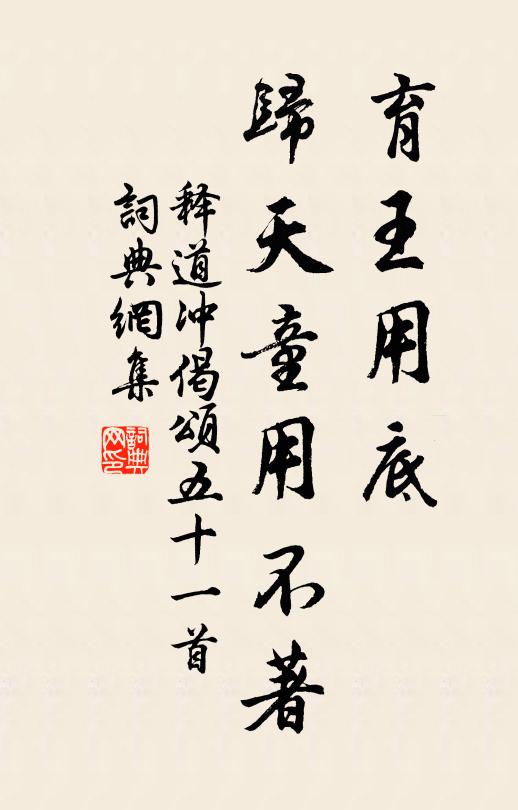 育王用底
歸天童用不著
释道冲偈頌五十一首
詞典網集
詞典网印